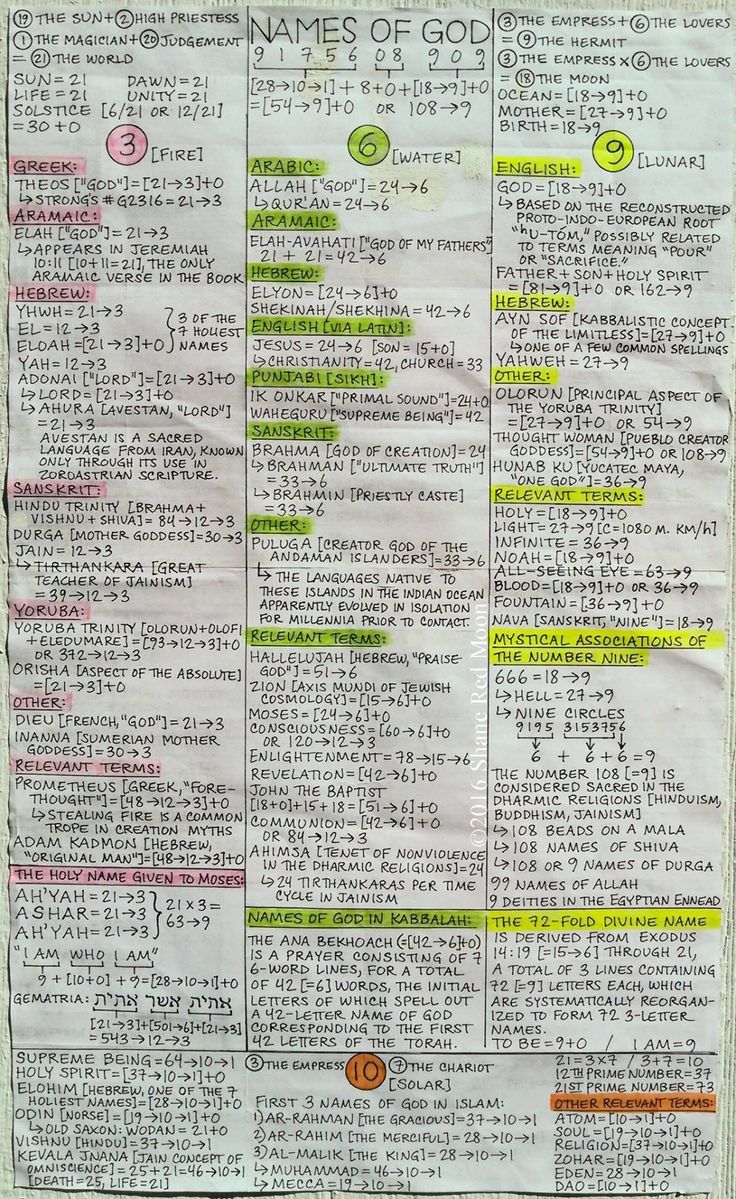 ⑲ THE SUN + ② HIGH PRIESTESS
① THE MAGICIAN + ⑳ JUDGEMENT
= ㉑ THE WORLD
SUN = 21 DAWN = 21
LIFE = 21 UNITY = 21
SOLSTICE [6/21 OR 12/21]
= 30+0
NAMES OF GOD
9 1 7 5 6 0 8 9 0 9
[28→10→1] + 8+0 + [18→9]+0
= [54→9]+0 OR 108→9
③ THE EMPRESS + ⑥ THE LOVERS
= ⑨ THE HERMIT
③ THE EMPRESS X ⑥ THE LOVERS
= ⑱ THE MOON
OCEAN = [18→9]+0
MOTHER = [27→9]+0
BIRTH = 18→9
3 [FIRE]
GREEK:
THEOS ["GOD"] = [21→3]+0
↳ STRONG'S #G2316 = 21→3
ARAMAIC:
ELAH ["GOD"] = 21→3
↳ APPEARS IN JEREMIAH
10:11 [10+11=21], THE ONLY
ARAMAIC VERSE IN THE BOOK
HEBREW:
YHWH = 21→3
EL = 12→3
ELOAH = [21→3]+0
3 OF THE
7 HOLIEST
NAMES
YAH = 12→3
ADONAI ["LORD"] = [21→3]+0
↳ LORD = [21→3]+0
↳ AHURA [AVESTAN, "LORD"]
= 21→3
AVESTAN IS A SACRED
LANGUAGE FROM IRAN, KNOWN
ONLY THROUGH ITS USE IN
ZOROASTRIAN SCRIPTURE.
SANSKRIT:
HINDU TRINITY [BRAHMA+
VISHNU+SHIVA] = 84→12→3
DURGA [MOTHER GODDESS] = 30→3
JAIN = 12→3
↳ TIRTHANKARA [GREAT
TEACHER OF JAINISM]
= 39→12→3
YORUBA:
YORUBA TRINITY [OLORUN+OLOFI
+ELEDUMARE] = [93→12→3]+0
OR 372→12→3
ORISHA [ASPECT OF THE ABSOLUTE]
= [21→3]+0
OTHER:
DIEU [FRENCH, "GOD"] = 21→3
INANNA [SUMERIAN MOTHER
GODDESS] = 30→3
RELEVANT TERMS:
PROMETHEUS [GREEK, "FORE-
THOUGHT"] = [48→12→3]+0
↳ STEALING FIRE IS A COMMON
TROPE IN CREATION MYTHS
ADAM KADMON [HEBREW,
"ORIGINAL MAN"] = [48→12→3]+0
THE HOLY NAME GIVEN TO MOSES:
AH'YAH = 21→3
ASHAR = 21→3
AH'YAH = 21→3
21 x 3 =
63→9
"I AM WHO I AM"
9 + [10+0] + 9 = [28→10→1]+0
GEMATRIA: אתית אשר אתית
[21→3]+[501→6]+[21→3]
= 543→12→3
6 [WATER]
ARABIC:
ALLAH ["GOD"] = 24→6
↳ QUR'AN = 24→6
ARAMAIC:
ELAH-AVAHATI ["GOD OF MY FATHERS"]
21 + 21 = 42→6
HEBREW:
ELYON = [24→6]+0
SHEKINAH/SHEKHINA = 42→6
ENGLISH [VIA LATIN]:
JESUS = 24→6 [SON = 15+0]
↳ CHRISTIANITY = 42, CHURCH = 33
PUNJABI [SIKH]:
IK ONKAR ["PRIMAL SOUND"] = 24+0
WAHEGURU ["SUPREME BEING"] = 42
SANSKRIT:
BRAHMA [GOD OF CREATION] = 24
↳ BRAHMAN ["ULTIMATE TRUTH"]
= 33→6
↳ BRAHMIN [PRIESTLY CASTE]
= 33→6
OTHER:
PULUGA [CREATOR GOD OF THE
ANDAMAN ISLANDERS] = 33→6
↳ THE LANGUAGES NATIVE TO
THESE ISLANDS IN THE INDIAN OCEAN
APPARENTLY EVOLVED IN ISOLATION
FOR MILLENNIA PRIOR TO CONTACT.
RELEVANT TERMS:
HALLELUJAH [HEBREW, "PRAISE
GOD"] = 51→6
ZION [AXIS MUNDI OF JEWISH
COSMOLOGY] = [15→6]+0
MOSES = [24→6]+0
CONSCIOUSNESS = [60→6]+0
OR 120→12→3
ENLIGHTENMENT = 78→15→6
REVELATION = [42→6]+0
JOHN THE BAPTIST
[18+0]+15+18 = [51→6]+0
COMMUNION = [42→6]+0
OR 84→12→3
AHIMSA [TENET OF NONVIOLENCE
IN THE DHARMIC RELIGIONS] = 24
↳ 24 TIRTHANKARAS PER TIME
CYCLE IN JAINISM
NAMES OF GOD IN KABBALAH:
THE ANA BEKHOACH (=[42→6]+0)
IS A PRAYER CONSISTING OF 7
6-WORD LINES, FOR A TOTAL
OF 42 [=6] WORDS, THE INITIAL
LETTERS OF WHICH SPELL OUT
A 42-LETTER NAME OF GOD
CORRESPONDING TO THE FIRST
42 LETTERS OF THE TORAH.
9 [LUNAR]
ENGLISH:
GOD = [18→9]+0
↳ BASED ON THE RECONSTRUCTED
PROTO-INDO-EUROPEAN ROOT
"hU-TÓM," POSSIBLY RELATED
TO TERMS MEANING "POUR"
OR "SACRIFICE."
FATHER + SON + HOLY SPIRIT
= [81→9]+0 OR 162→9
HEBREW:
AYN SOF [KABBALISTIC CONCEPT
OF THE LIMITLESS] = [27→9]+0
↳ ONE OF A FEW COMMON SPELLINGS
YAHWEH = 27→9
OTHER:
OLORUN [PRINCIPAL ASPECT OF
THE YORUBA TRINITY]
= [27→9]+0 OR 54→9
THOUGHT WOMAN [PUEBLO CREATOR
GODDESS] = [54→9]+0 OR 108→9
HUNAB KU [YUCATEC MAYA,
"ONE GOD"] = 36→9
RELEVANT TERMS:
HOLY = [18→9]+0
LIGHT = 27→9 [C=1080 M. KM/H]
INFINITE = 36→9
NOAH = [18→9]+0
ALL-SEEING EYE = 63→9
BLOOD = [18→9]+0 OR 36→9
FOUNTAIN = [36→9]+0
NAVA [SANSKRIT, "NINE"] = 18→9
MYSTICAL ASSOCIATIONS OF
THE NUMBER NINE:
666 = 18→9
↳ HELL = 27→9
↳ NINE CIRCLES
9195 3153756
6 + 6 + 6 = 9
THE NUMBER 108 [=9] IS
CONSIDERED SACRED IN THE
DHARMIC RELIGIONS [HINDUISM,
BUDDHISM, JAINISM]
↳ 108 BEADS ON A MALA
↳ 108 NAMES OF SHIVA
↳ 108 OR 9 NAMES OF DURGA
99 NAMES OF ALLAH
9 DEITIES IN THE EGYPTIAN ENNEAD
THE 72-FOLD DIVINE NAME
IS DERIVED FROM EXODUS
14:19 [=15→6] THROUGH 21,
A TOTAL OF 3 LINES CONTAINING
72 [=9] LETTERS EACH, WHICH
ARE SYSTEMATICALLY REORGAN-
IZED TO FORM 72 3-LETTER
NAMES.
TO BE = 9+0 / I AM = 9
SUPREME BEING = 64→10→1
HOLY SPIRIT = [37→10→1]+0
ELOHIM [HEBREW, ONE OF THE 7
HOLIEST NAMES] = [28→10→1]+0
ODIN [NORSE] = [19→10→1]+0
↳ OLD SAXON: WODAN = 21+0
VISHNU [HINDU] = 37→10→1
KEVALA JNANA [JAIN CONCEPT OF
OMNISCIENCE] = 25+21=46→10→1
[DEATH=25, LIFE=21]
③ THE EMPRESS 10 ⑦ THE CHARIOT
[SOLAR]
FIRST 3 NAMES OF GOD IN ISLAM:
1) AR-RAHMAN [THE GRACIOUS] = 37→10→1
2) AR-RAHIM [THE MERCIFUL] = 28→10→1
3) AL-MALIK [THE KING] = 28→10→1
↳ MUHAMMAD = 46→10→1
↳ MECCA = 19→10→1
21 = 3x7 / 3+7 = 10
12TH PRIME NUMBER = 37
21ST PRIME NUMBER = 73
OTHER RELEVANT TERMS:
ATOM = [10→1]+0
SOUL = [19→10→1]+0
RELIGION = [37→10→1]+0
ZOHAR = [19→10→1]+0
EDEN = 28→10→1
DAO = [10→1]+0
©2016 Shane Red Moon